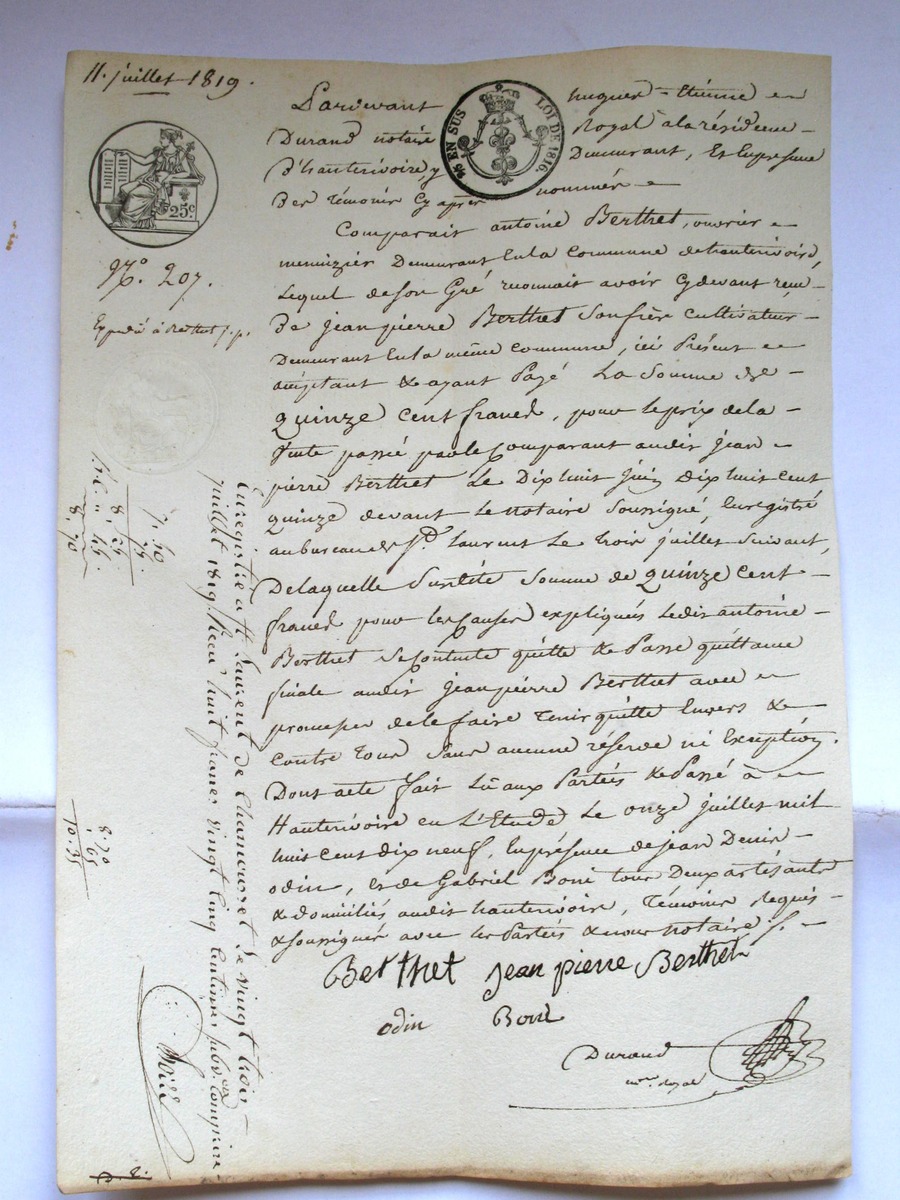 11. juillet 1819.
Pardevant hugues-Etienne
Durand notaire Royal a la résidence
D'hauterivoire, y Demeurant, Et En presence
Des témoins Cy après nommés
Comparait antoine Berthet, ouvrier
menuizier Demeurant En la Commune de hauterivoire,
Lequel de son Gré reconnait avoir Cy devant reçu
De jean pierre Berthet Son frère cultivateur
Demeurant En la même commune, ici Présent
acceptant & ayant Payé La Somme de
quinze cent francs, pour le prix de la
Vente passée par le Comparant audit jean
pierre Berthet Le Dix huit juin dix huit cent
quinze devant Le notaire Soussigné, Enregistré
au bureau de St. Laurent Le trois juillet Suivant,
De laquelle Susdite Somme de quinze cent
francs pour les Causes expliqués Ledit antoine
Berthet Se Contente quitte & Passe quittance
finale audit jean pierre Berthet avec
promesse de le faire tenir quitte Envers &
contre tous Sans aucune réserve ni Exception.
Dont acte fait Lû aux Parties & Passé à
Hauterivoire en L'Etude Le onze juillet mil
huit cent dix neuf, En présence de jean Denis
odin, et de Gabriel Boni tous Deux artisants
& domiciliés audit hauterivoire, témoins Requis
& soussignés avec les Parties & nous notaire
Berthet jean pierre Berthet
odin Boni
Durand
nre royal
EN SUS LOI DE 1816.
25c
No. 207.
Expédié à Berthet j. p.
7. 50
8. 25
8. 70
Enregistré a St. Laurent de Chamousset Le vingt trois
juillet 1819, Recu huit francs Vingt Cinq Centimes subv.on Comprise
8. 70
1. 65
10. 35